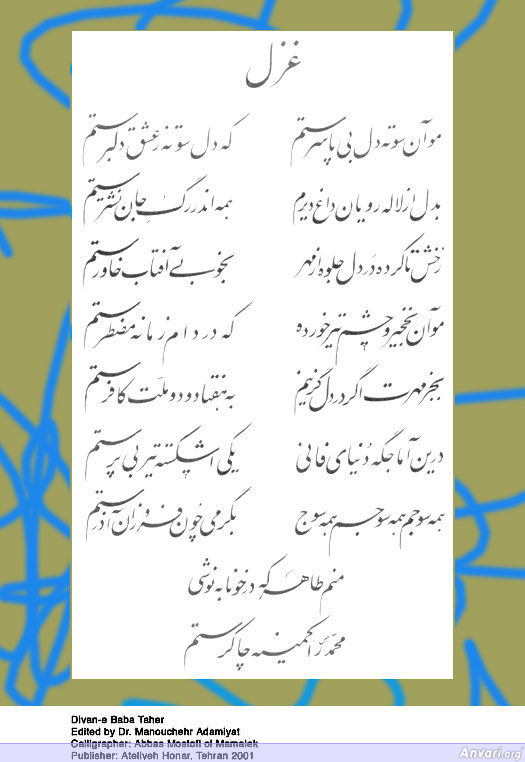 غزل
موآن سوته دل بی پا سرستم که دل سوته ز عشق دلبرستم
بدل از لاله رویان داغ دیرم همه اندر رگ جان نشترستم
رخش تا کرده در دل جلوه از مهر بخوبی آفتاب خاورستم
موآن نخجیر و چشم تیر خورده که در دام زمانه مضطرستم
بجز مهرت اگر در دل گزینم به هفتاد و دو ملّت کافرستم
درین آماجگه دنیای فانی یکی اشکسته تیر بی پرستم
همه سوجم همه سوجم همه سوج بگرمی چون فروزان آذرستم
منم طاهر که در خونابه نوشی
محمّد را کمینه چاکرستم
Divan-e Baba Taher
Edited by Dr. Manouchehr Adamiyat
Calligrapher: Abbas Mostofi ol Mamalek
Publisher: Ateliyeh Honar, Tehran 2001
Anvari.org